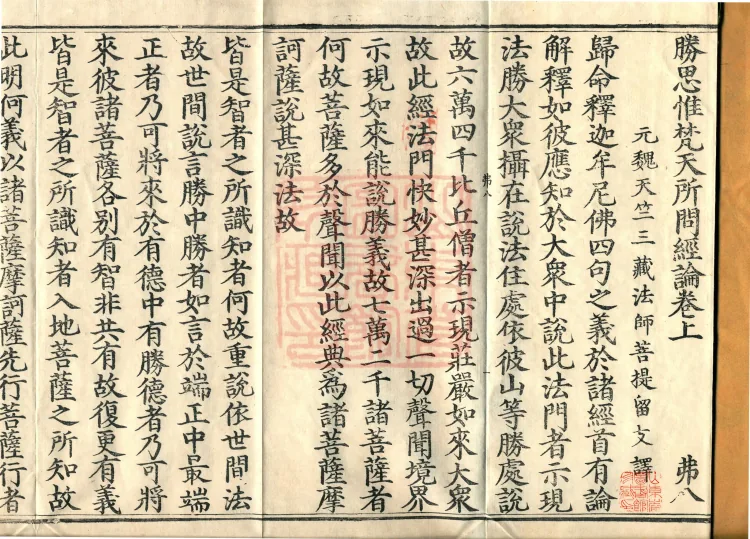 勝思惟梵天所問經論卷上 弗八
元魏天竺三藏法師菩提留支譯
歸命釋迦牟尼佛四句之義於諸經首有論
解釋如彼應知於大衆中說此法門者示現
法勝大衆攝在說法住處依彼山等勝處說
弗八
故六萬四千比丘僧者示現莊嚴如來大衆
故此經法門快妙甚深出過一切聲聞境界
示現如來能說勝義故七萬二千諸菩薩者
何故菩薩多於聲聞以此經典為諸菩薩摩
訶薩說甚深法故
皆是智者之所識知者何故重說依世間法
故世間說言勝中勝者如言於端正中最端
正者乃可將來於有德中有勝德者乃可將
來彼諸菩薩各別有智非共有故復更有義
皆是智者之所識知者入地菩薩之所知故
此明何義以諸菩薩摩訶薩先行菩薩行者